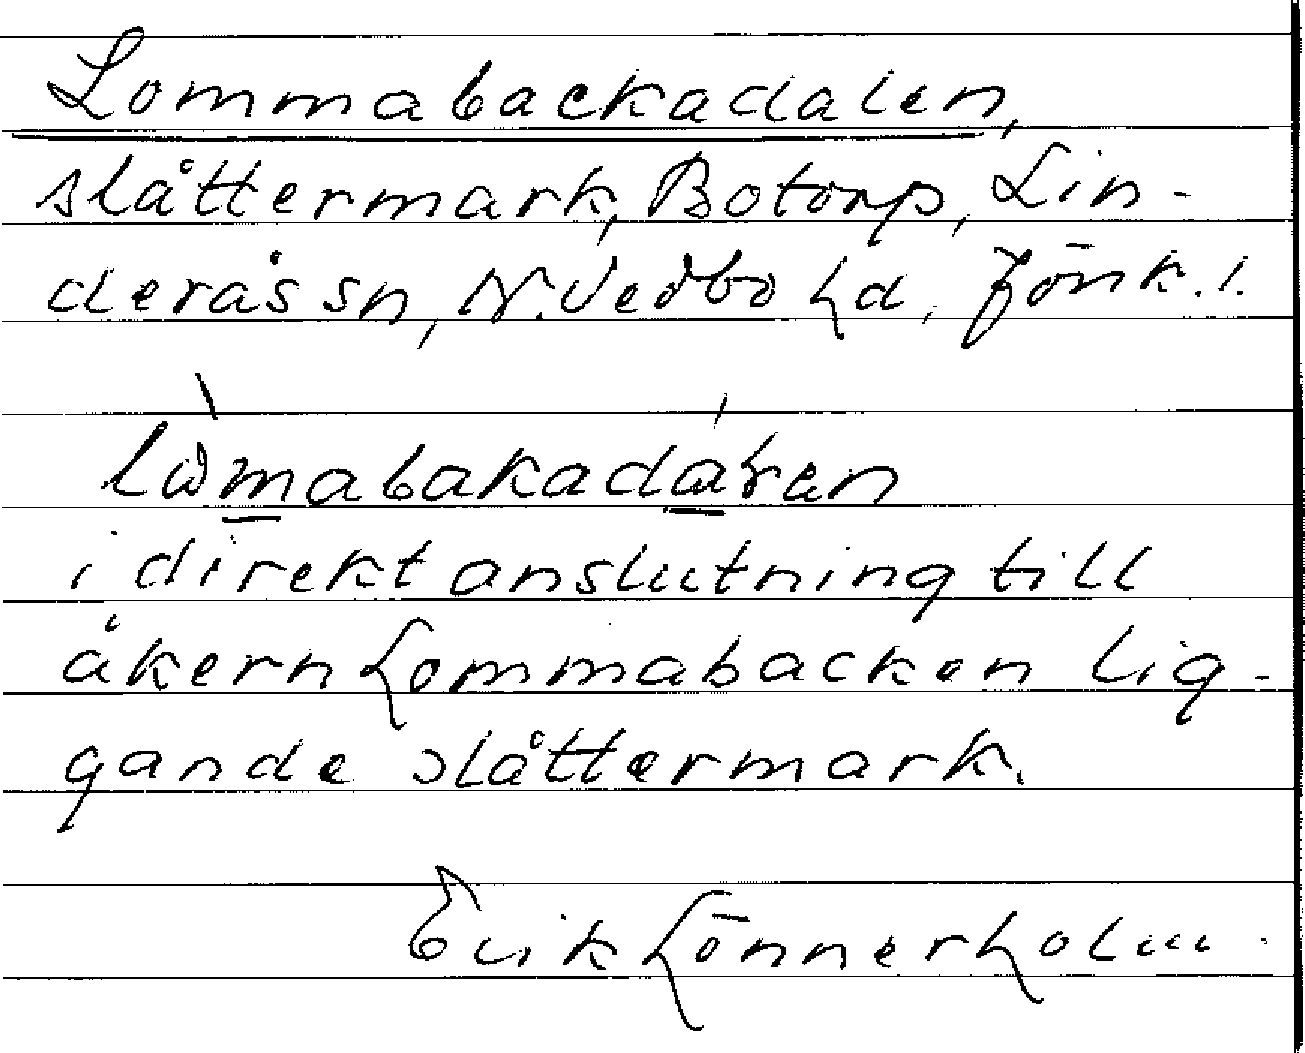 Lommabackadalen,
slåttermark, Botorp, Lin-
derås sn, N. Vedbo hd, Jönk. l.
i direkt anslutning till
åkern Lommabacken lig-
gande slåttermark.
Erik Lönnerholm.